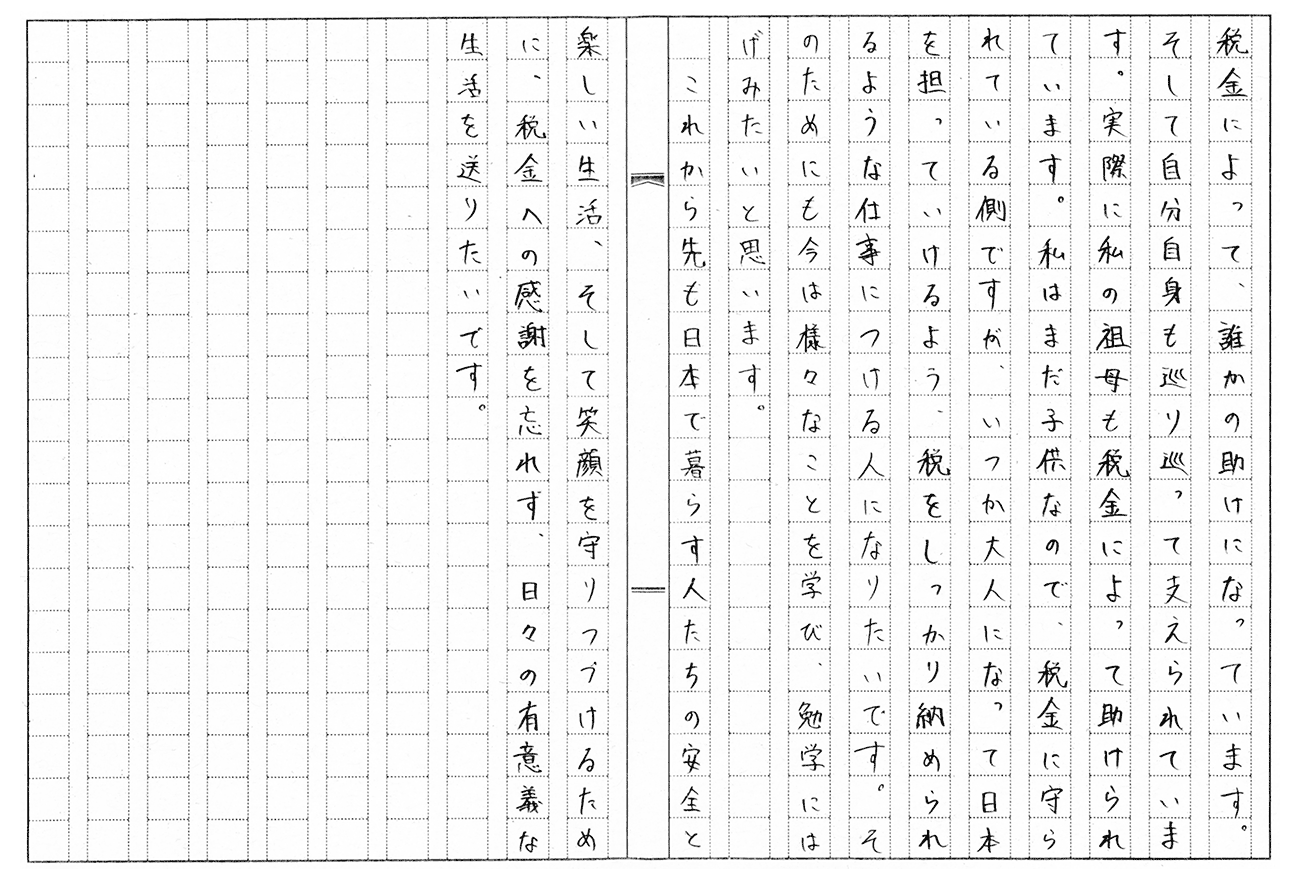 税金によって、誰かの助けになっています。
そして自分自身も巡り巡って支えられていま
す。実際に私の祖母も税金によって助けられ
ています。私はまだ子供なので、税金に守ら
れている側ですが、いつか大人になって日本
を担っていけるよう、税をしっかり納められ
るような仕事につける人になりたいです。そ
のためにも今は様々なことを学び、勉学には
げみたいと思います。
　これから先も日本で暮らす人たちの安全と
楽しい生活、そして笑顔を守りつづけるため
に、税金への感謝を忘れず、日々の有意義な
生活を送りたいです。